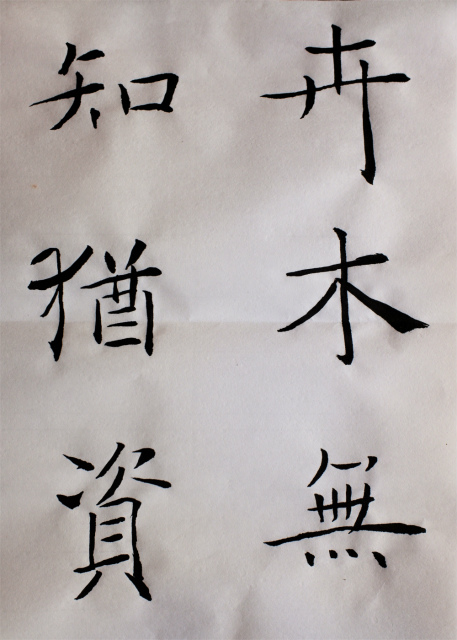 卉木無
知猶資